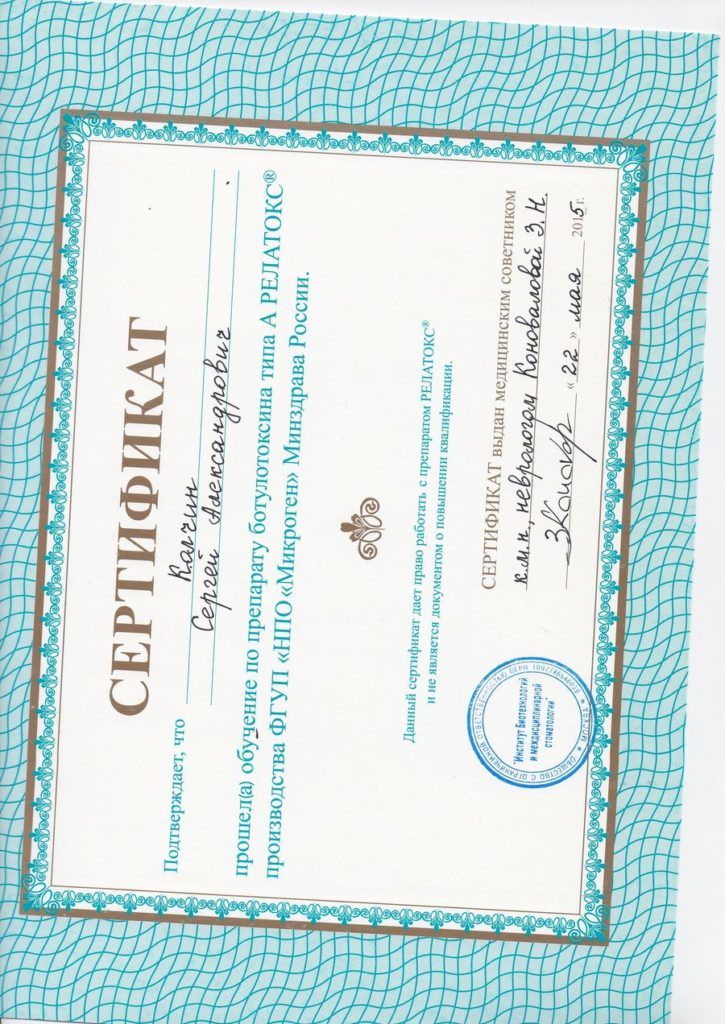 СЕРТИФИКАТ
Подтверждает, что Калчин
Сергей Александрович
прошел(а) обучение по препарату ботулотоксина типа А РЕЛАТОКС®
производства ФГУП «НПО «Микроген» Минздрава России.
Данный сертификат дает право работать с препаратом РЕЛАТОКС®
и не является документом о повышении квалификации.
СЕРТИФИКАТ выдан медицинским советником
к.м.н., неврологом Коноваловой З.Н.
« 22 » мая 2015 г.
ОБЩЕСТВО С ОГРАНИЧЕННОЙ ОТВЕТСТВЕННОСТЬЮ
МОСКВА
"Институт Биотехнологий
и междисциплинарной
стоматологии"